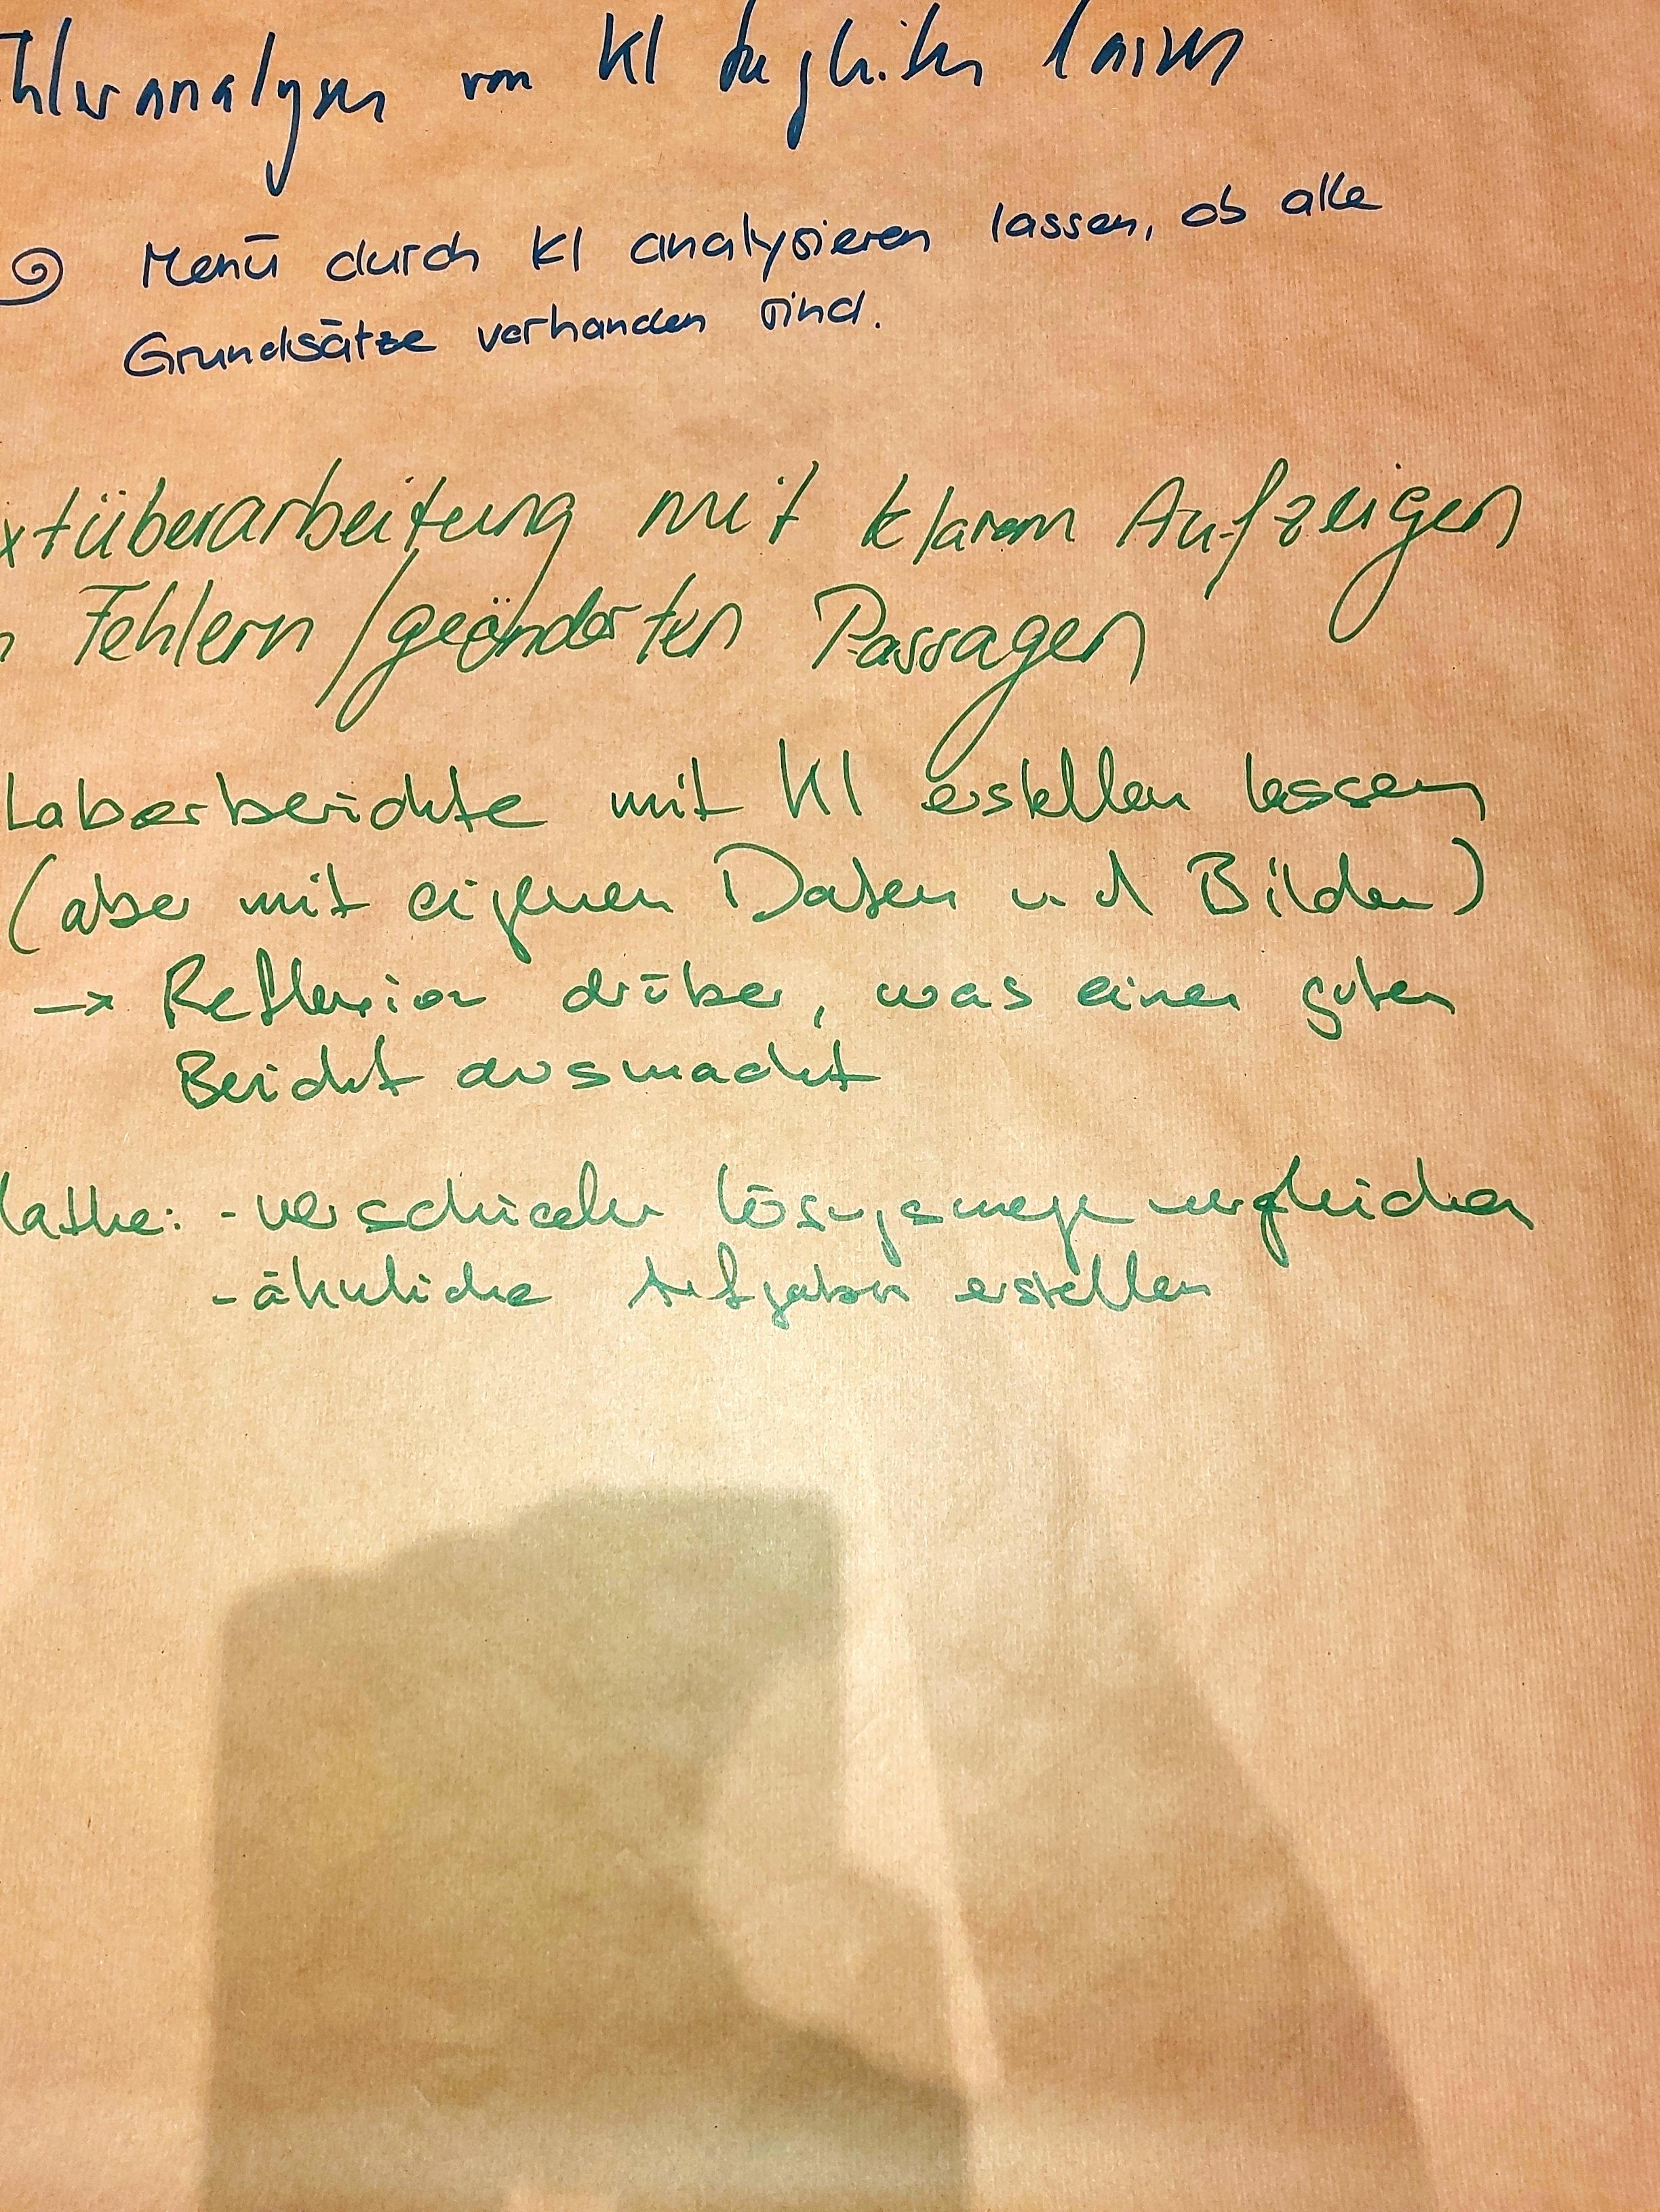 hleranalysen von KI begleiten lassen
Menü durch KI analysieren lassen, ob alle
Grundsätze vorhanden sind.
xtüberarbeitung mit klarem Aufzeigen
n Fehlern/geänderten Passagen
Laborberichte mit KI erstellen lassen
(aber mit eigenen Daten und Bildern)
→ Reflexion drüber, was einen guten
Bericht ausmacht
athe: - verschiedene Lösungswege vergleichen
- ähnliche Aufgaben erstellen